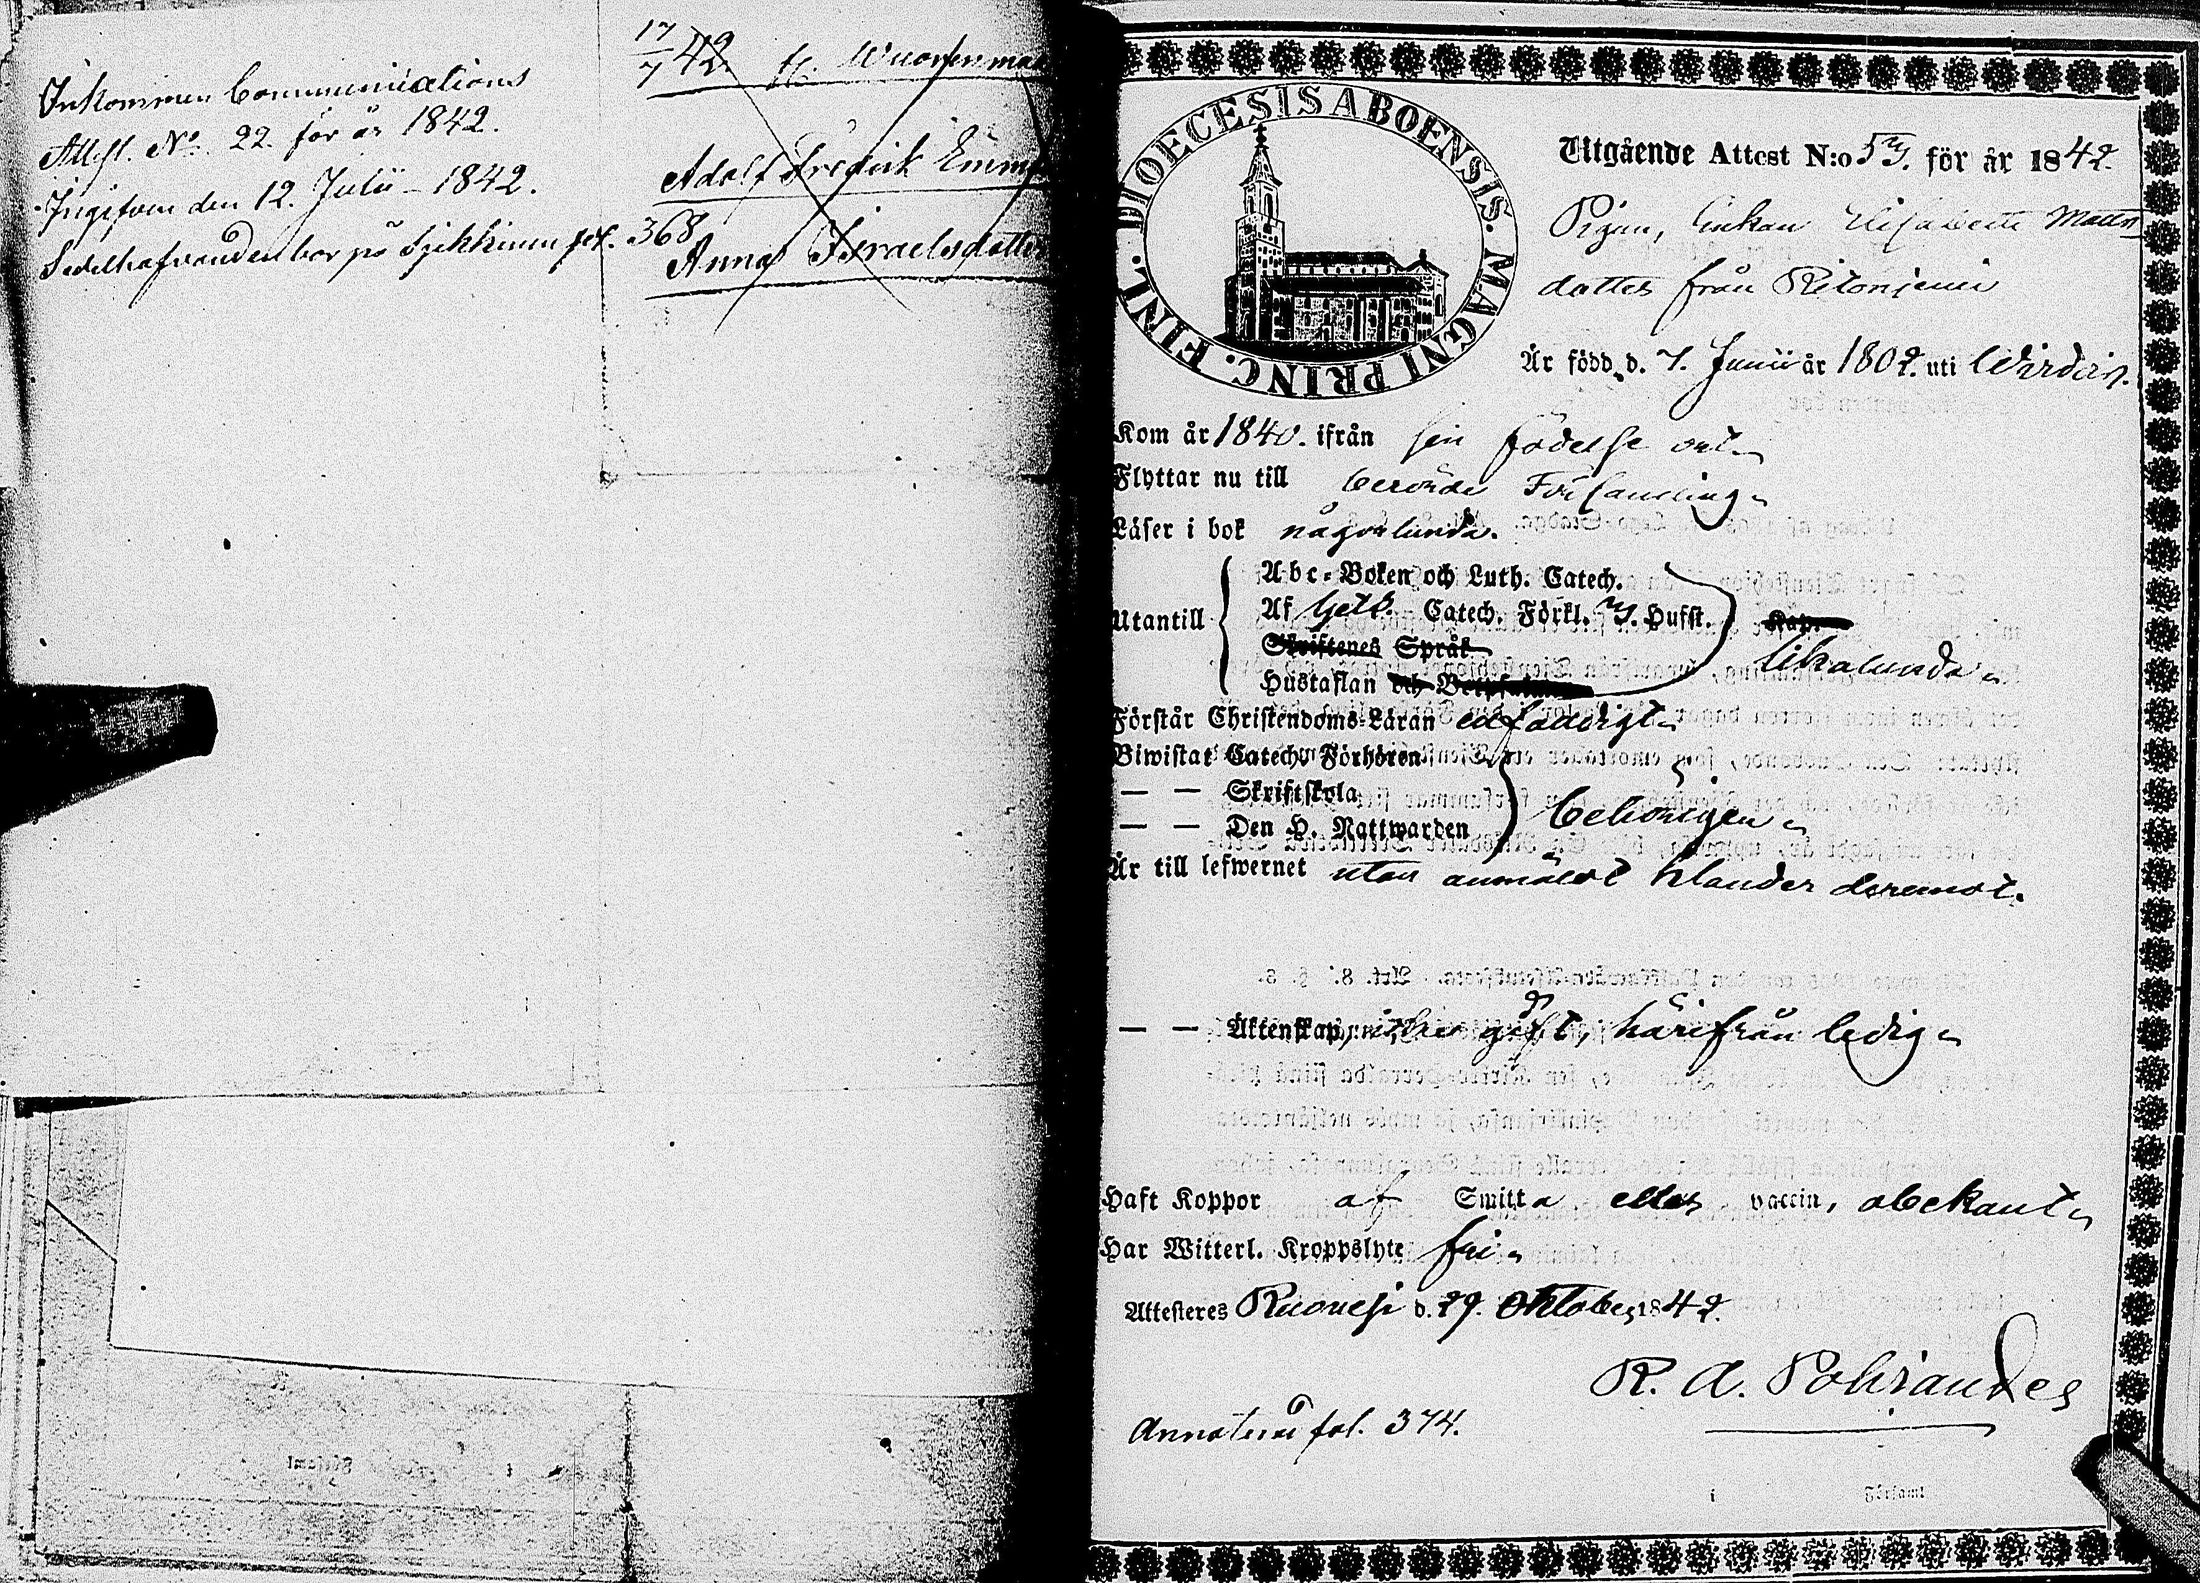 Inkommen Communications
Attest. No 22 för år 1842.
Ingifven den 12. Julii 1842.
Sedelhafvanden bor på Sjikkinen pag. 368
17/7 42
Adolf Fredrik Emm
Anna Israelsdotter
DIOECESIS ABOENSIS. MAGNI PRINC. FINL.
Utgående Attest N:o 53. för år 1842.
Pigan, Enkan Elisabeth Matts
dotter från Ritoniemi
Är född d. 7. Junii år 1802. uti Wirdois.
Kom år 1840. ifrån sin födelse ort
Flyttar nu till berörde Församling
Läser i bok någorlunda.
Utantill
Abc-Boken och Luth. Catech.
Af Catech. Förkl. 3. Hufst. Kap.
Skriftenes Språk
Hustaflan och
likalunda
Förstår Christendoms-Läran enfaldigt
Biwistat Catech. Förhören
— — Skriftskola
— — Den H. Nattwarden
behörigen
Är till lefwernet utan anmäldt klander deremot.
— — Äktenskap, icke gift, härifrån ledig
Haft Koppor af Smitta eller vaccin, obekant
Har Witterl. Kroppslyte fri
Attesteres Ruovesi d. 29. Oktober 1842.
R. A. Polviander
Annoterad fol. 374.
i Församl